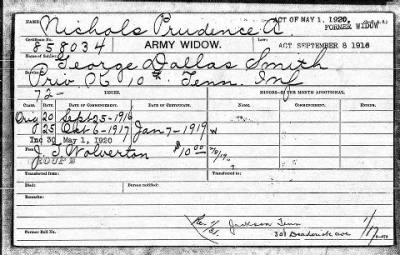 NAME: Nichols Prudence A. ACT OF MAY 1, 1920,
FORMER WIDOW
Certificate No. 858034 ARMY WIDOW. ACT SEPTEMBER 8 1916
Name of Soldier: George Dallas Smith
Service: Priv Co 10th Tenn. Inf
72- ISSUE.
CLASS. RATE. DATE OF COMMENCEMENT. DATE OF CERTIFICATE.
Aug 20 Sept 25-1916
25 Oct 6-1917 Jan 7-1919
Inc 30 May 1, 1920
J. J. Wolverton $10.00
GROUP 2
Transferred from: Transferred to:
Died: Bureau notified:
Remarks:
Jackson Tenn
Former Roll No. 301 Deaderick ave